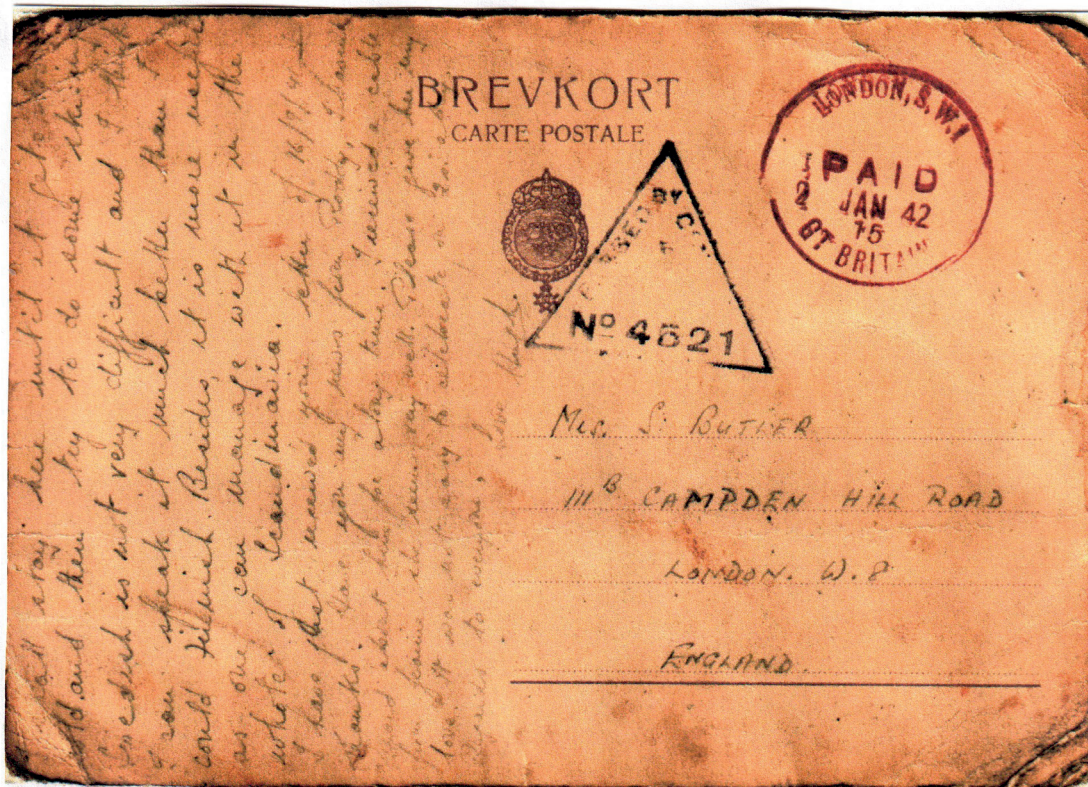 BREVKORT
CARTE POSTALE
LONDON, S.W.1
PAID
2 JAN 42
15
GT BRITAIN
BY
Nº 4821
Mrs. S. BUTLER
111B CAMPDEN HILL ROAD
LONDON. W.8
ENGLAND.
shall stay here until it gets
cold and then try to do some skiing
Swedish is not very difficult and I think
I can speak it much better than I
could Finnish. Besides, it is more useful
as one can manage with it in the
whole of Scandinavia.
I have just received your letter of 16/9/41 —
thanks. Have you any news from
about him for a long time. I received a cable
from very well. Please give he my
love. It was not easy to
Regards to everyone, love